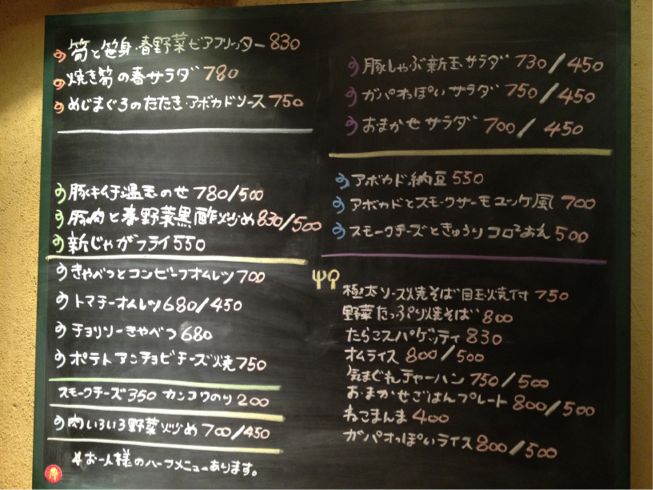 筍と笹身・春野菜ビアフリッター 830
焼き筍の春サラダ 780
めじまぐろのたたき・アボカドソース 750
豚キムチ温玉のせ 780/500
豚肉と春野菜黒酢炒め 830/500
新じゃがフライ 550
きゃべつとコンビーフオムレツ 700
トマチーオムレツ 680/450
チョリソーきゃべつ 680
ポテトアンチョビチーズ焼 750
スモークチーズ 350 カンコクのり 200
肉いろいろ野菜炒め 700/450
お一人様のハーフメニューあります。
豚しゃぶ新玉サラダ 730/450
ガパオっぽいサラダ 750/450
おまかせサラダ 700/450
アボカド納豆 550
アボカドとスモークサーモユッケ風 700
スモークチーズときゅうりコロコロあえ 500
極太ソース焼そば目玉焼付 750
野菜たっぷり焼そば 800
たらこスパゲッティ 830
オムライス 800/500
気まぐれチャーハン 750/500
おまかせごはんプレート 800/500
ねこまんま 400
ガパオっぽいライス 800/500